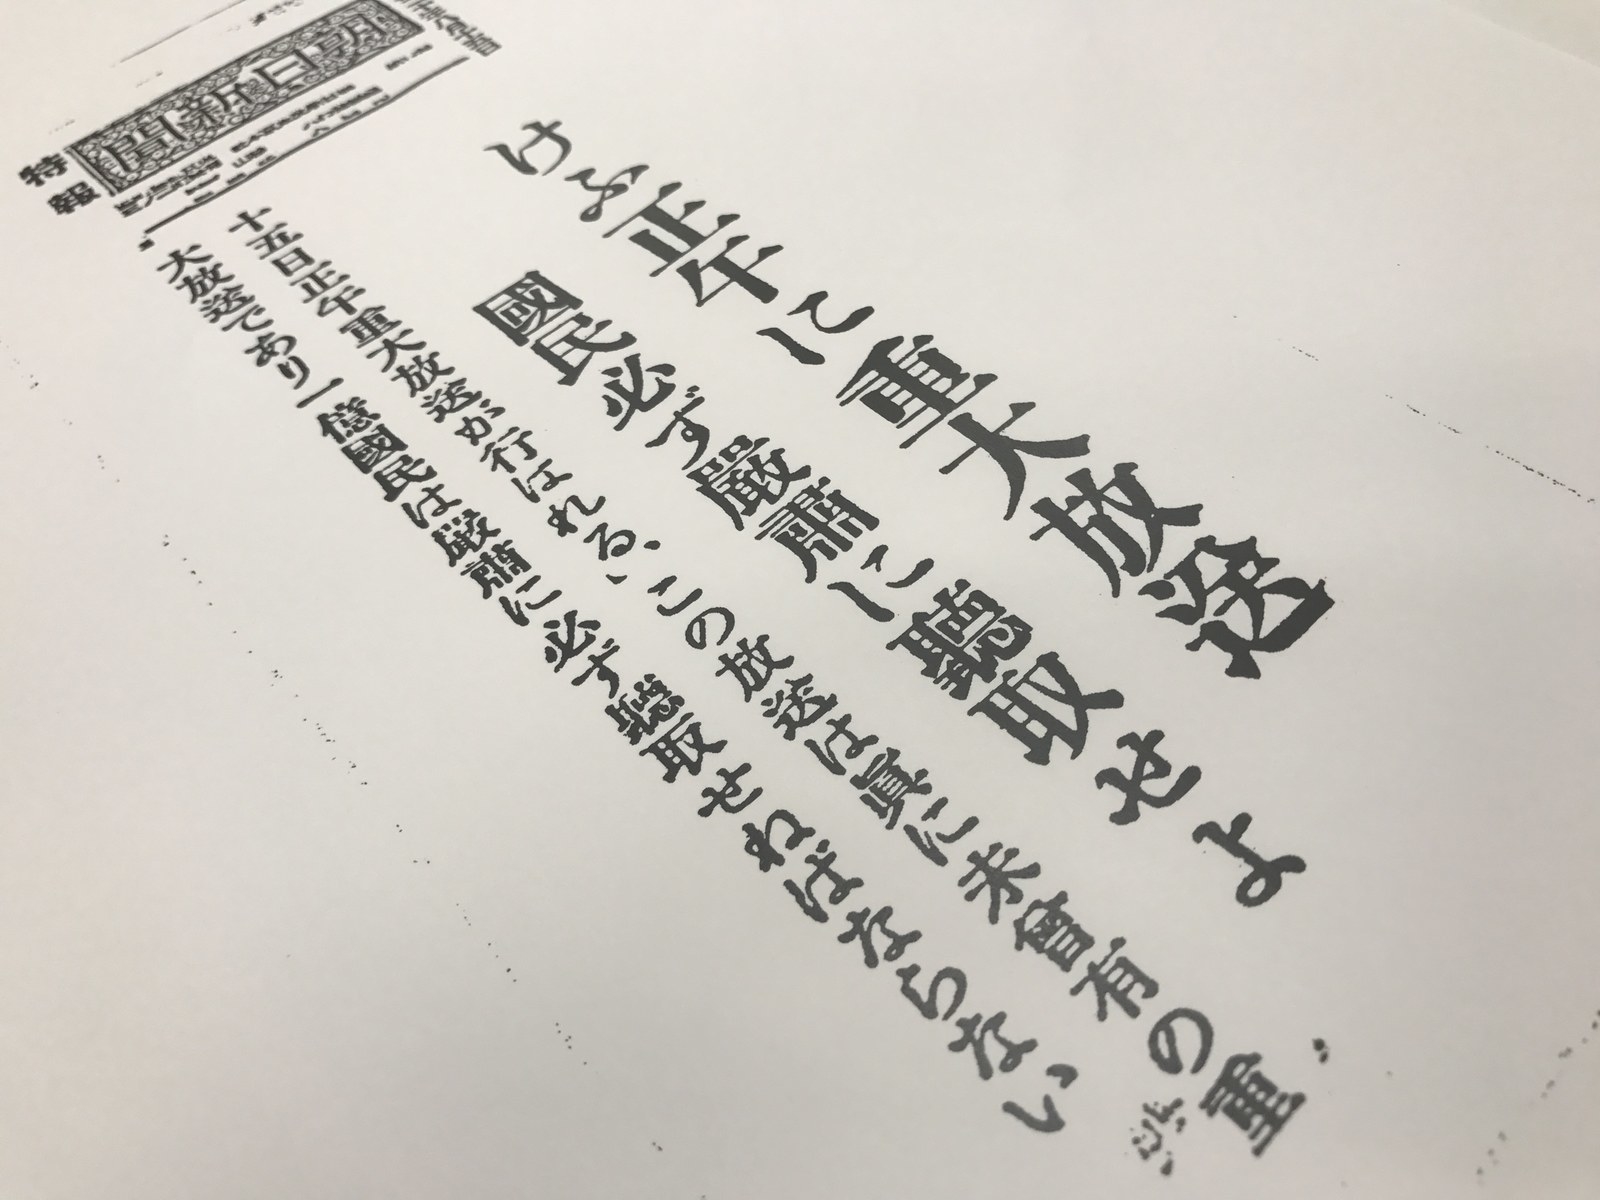 朝日新聞
特報
けふ正午に重大放送
國民必ず嚴肅に聽取せよ
十五日正午重大放送が行はれる、この放送は眞に未曾有の重
大放送であり一億國民は嚴肅に必ず聽取せねばならない